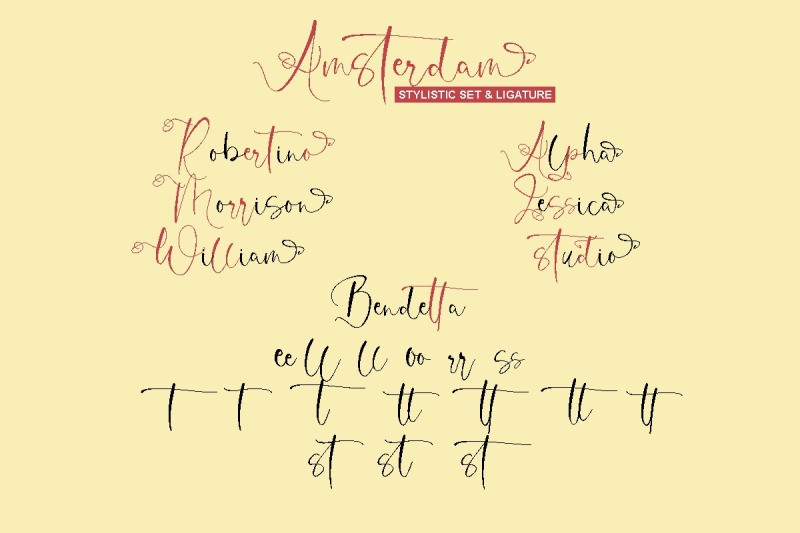 Amsterdam
STYLISTIC SET & LIGATURE
Robertino
Morrison
William
Alpha
Jessica
studio
Bendetta
ee ll ll oo rr ss
t t t tt tt tt tt
st st st